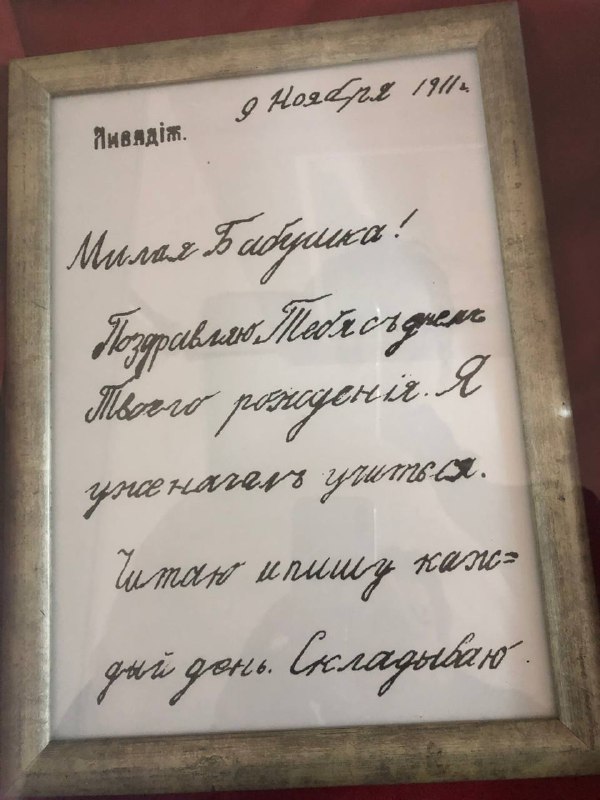 9 Ноября 1911 г.
Ливадія.
Милая Бабушка!
Поздравляю Тебя съ днемъ
Твоего рожденія. Я
уже началъ учиться.
Читаю и пишу каж=
дый день. Складываю